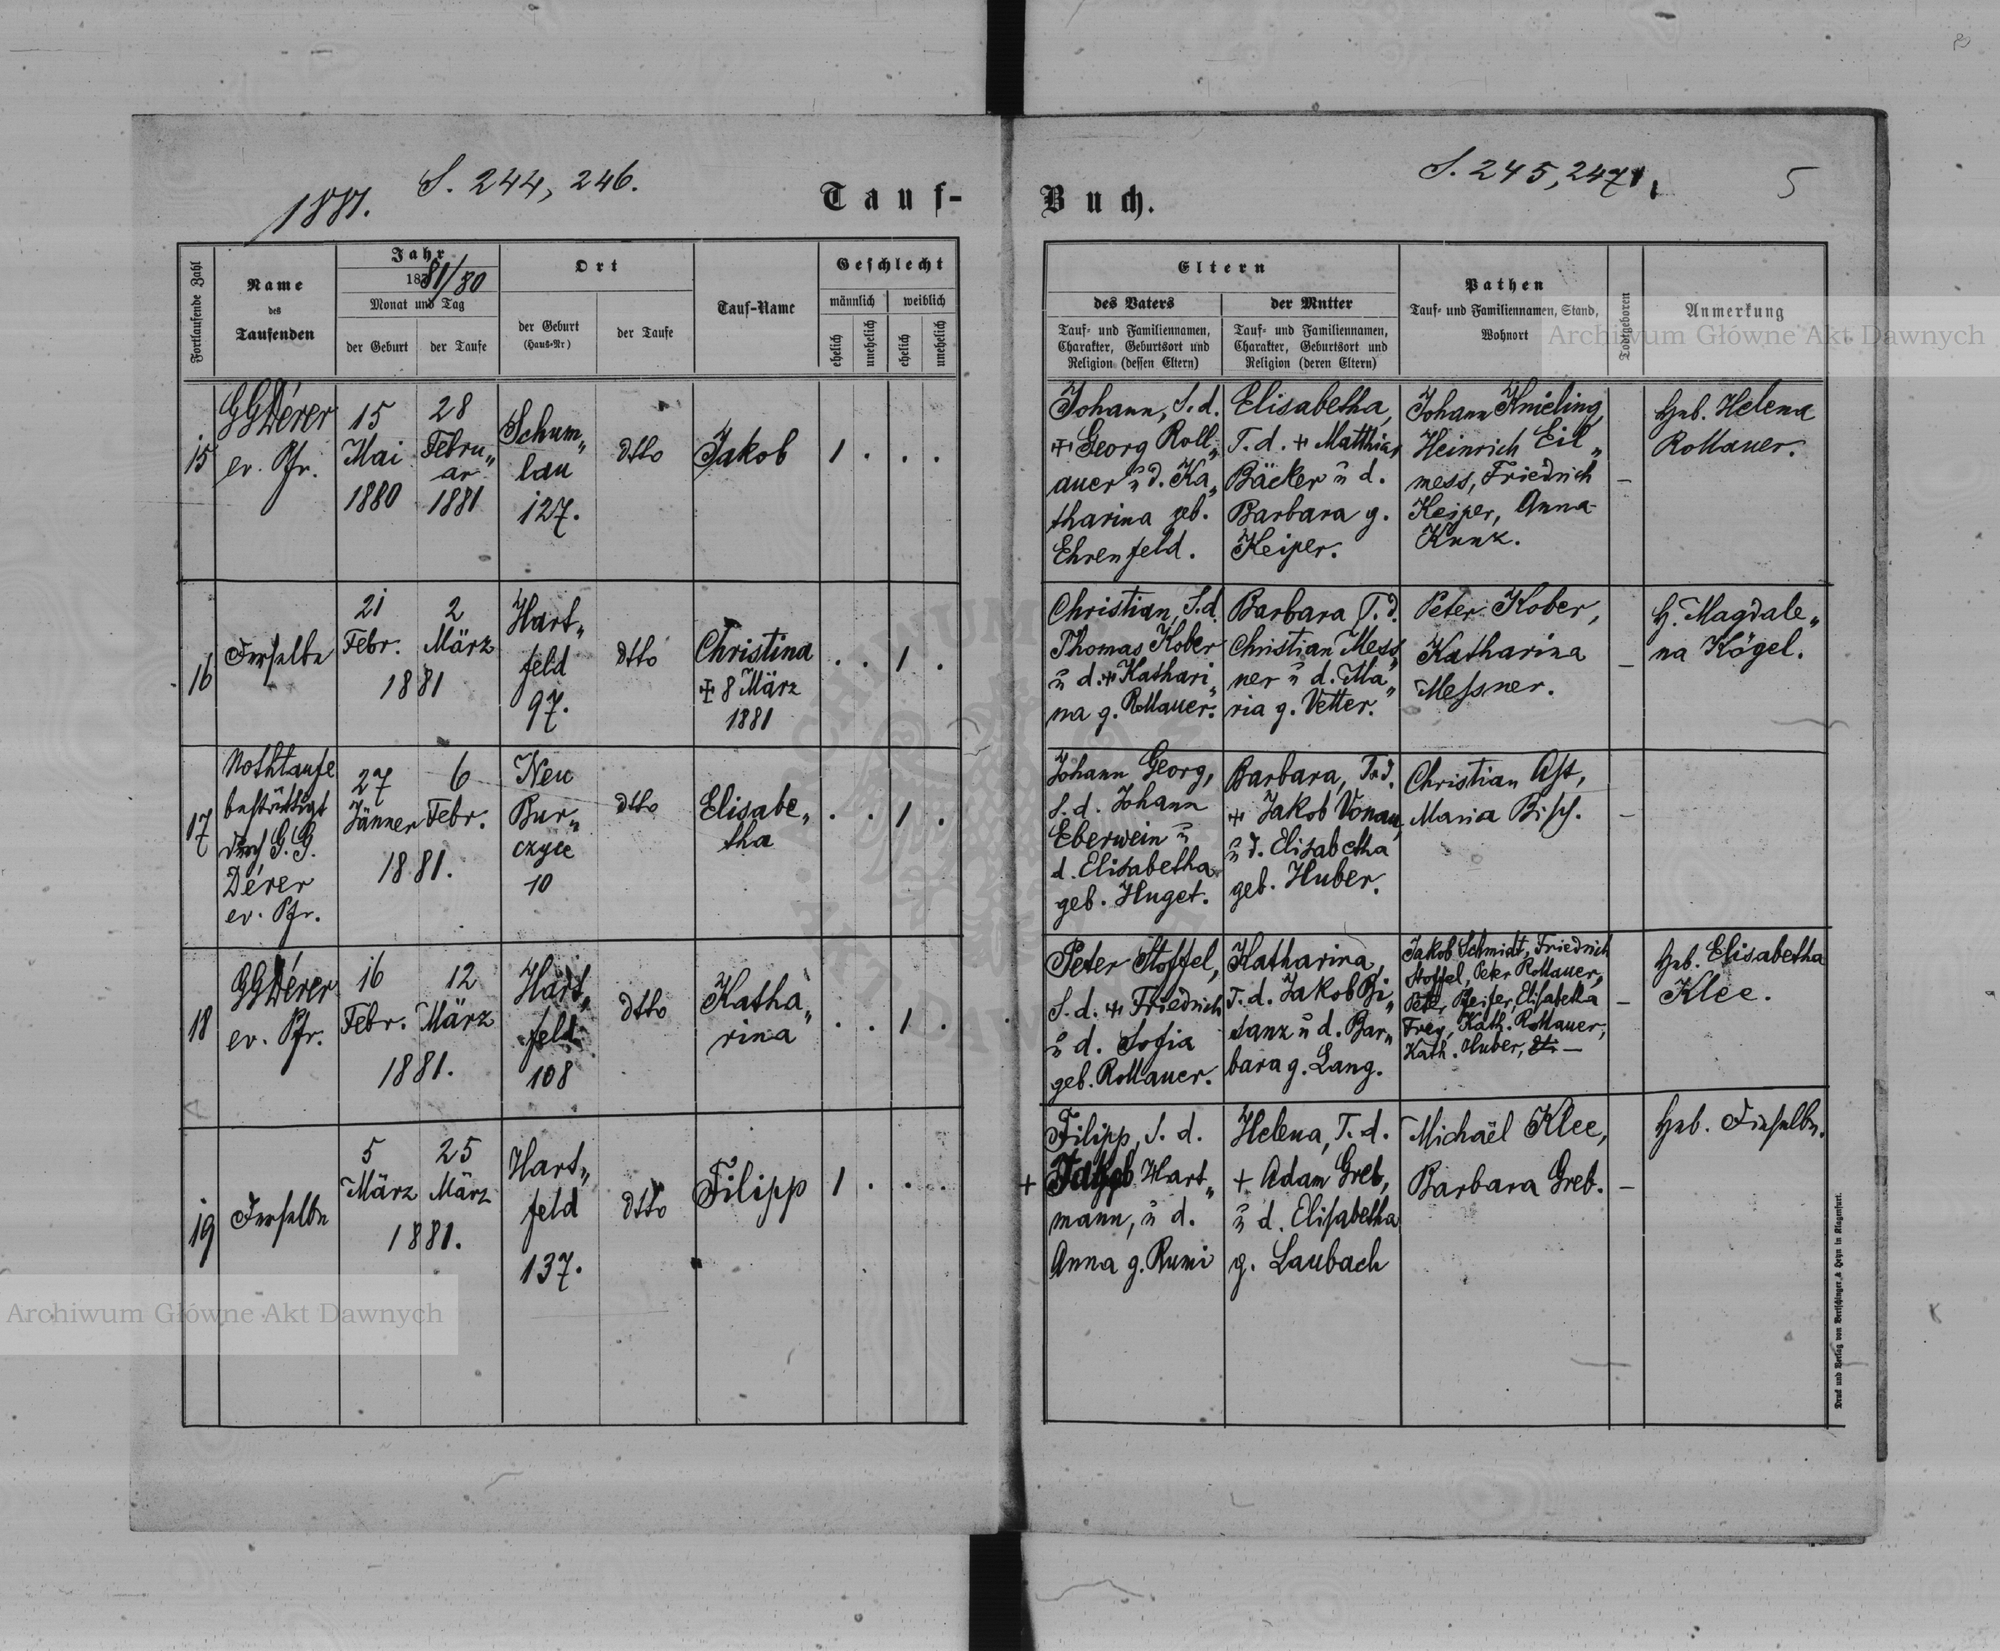 1881.
S. 244, 246.
Tauf-
Buch.
S. 245, 247,
5
Fortlaufende Zahl
Name
des
Taufenden
Jahr
187 81/80
Monat und Tag
der Geburt
der Taufe
Ort
der Geburt
(Haus-Nr)
der Taufe
Tauf-Name
Geschlecht
männlich
weiblich
ehelich
unehelich
ehelich
unehelich
Eltern
des Vaters
Tauf- und Familiennamen,
Charakter, Geburtsort und
Religion (dessen Eltern)
der Mutter
Tauf- und Familiennamen,
Charakter, Geburtsort und
Religion (deren Eltern)
Pathen
Tauf- und Familiennamen, Stand,
Wohnort
Todtgeboren
Anmerkung
15
GGDérer
ev. Pfr.
15
Mai
1880
28
Febru„
ar
1881
Schum„
lau
127.
dtto
Jakob
1 . . .
Johann, S. d.
+ Georg Roll„
auer u d. Ka„
tharina geb.
Ehrenfeld.
Elisabetha,
T. d. + Matthias
Bäcker u d.
Barbara g.
Keiper.
Johann Knieling,
Heinrich Eil„
mess, Friedrich
Keiper, Anna
Kunz.
–
Heb. Helena
Rollauer.
16
Derselbe
21
Febr.
2
März
1881
Hart„
feld
97.
dtto
Christina
+ 8 März
1881
. . 1 .
Christian, S. d.
Thomas Kober
u d. + Kathari„
na g. Rollauer.
Barbara T. d.
Christian Mess„
ner u d. Ma„
ria g. Vetter.
Peter Kober,
Katharina
Messner.
–
H. Magdale„
na Kögel.
17
Nothtaufe
bestättigt
durch G. G.
Dérer
ev. Pfr.
27
Jänner
6
Febr.
1881.
Neu
Bur„
czyce
10
dtto
Elisabe„
tha
. . 1 .
Johann Georg,
S. d. Johann
Eberwein u
d. Elisabetha
geb. Huget.
Barbara, T. d.
+ Jakob Vonau,
u d. Elisabetha
geb. Huber.
Christian Ast,
Maria Bisch.
–
18
GGDérer
ev. Pfr.
16
Febr.
12
März
1881.
Hart„
feld
108
dtto
Katha„
rina
. . 1 .
Peter Stoffel,
S. d. + Friedrich
u d. Sofia
geb. Rollauer.
Katharina,
T. d. Jakob Bi„
sanz u d. Bar„
bara g. Lang.
Jakob Schmidt, Friedrich
Stoffel, Peter Rollauer,
Peter Pfeifer, Elisabetha
Frey, Kath. Rollauer,
Kath. Huber,
–
Heb. Elisabetha
Klee.
19
Derselbe
5
März
25
März
1881.
Hart„
feld
137.
dtto
Filipp
1 . . .
Filipp, S. d.
+ Jakob Hart„
mann, u d.
Anna g. Rumi
Helena, T. d.
+ Adam Greb,
u d. Elisabetha
g. Laubach
Michaël Klee,
Barbara Greb.
–
Heb. Dieselbe.
Druck und Verlag von Bertschinger & Heyn in Klagenfurt.
Archiwum Główne Akt Dawnych
Archiwum Główne Akt Dawnych